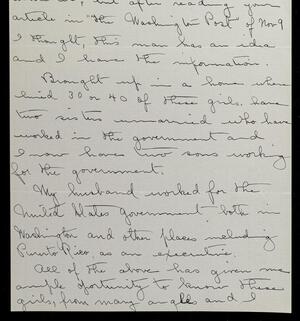 but after reading your
article in "The Washington Post" of Nov 9
I thought, this man has an idea
and I have the information.
Brought up in a home where
lived 30 or 40 of these girls, have
two sisters unmarried who have
worked in the government and
I now have two sons working
for the government.
My husband worked for the
United States Government both in
Washington and other places including
Puerto Rico, as an executive.
All of the above has given me
ample oportunity to know these
girls, from many angles and I